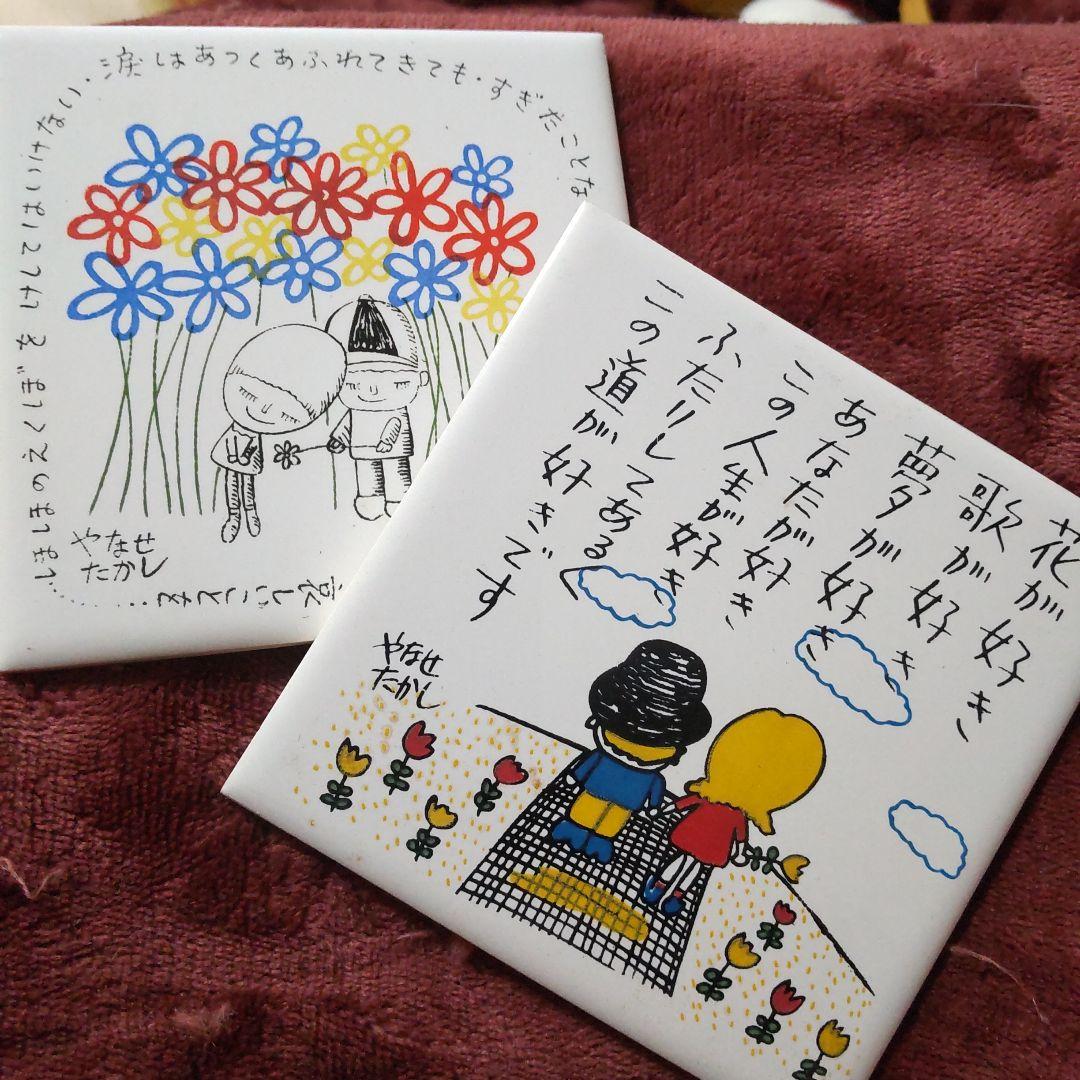 のえくぼをけしてはいけない・
涙はあつくあふれてきても・すぎたことな
しいことを・・・
やなせ
たかし
花が好き
歌が好き
夢が好き
あなたが好き
この人生が好き
ふたりしてあるく
この道が好きです
やなせ
たかし